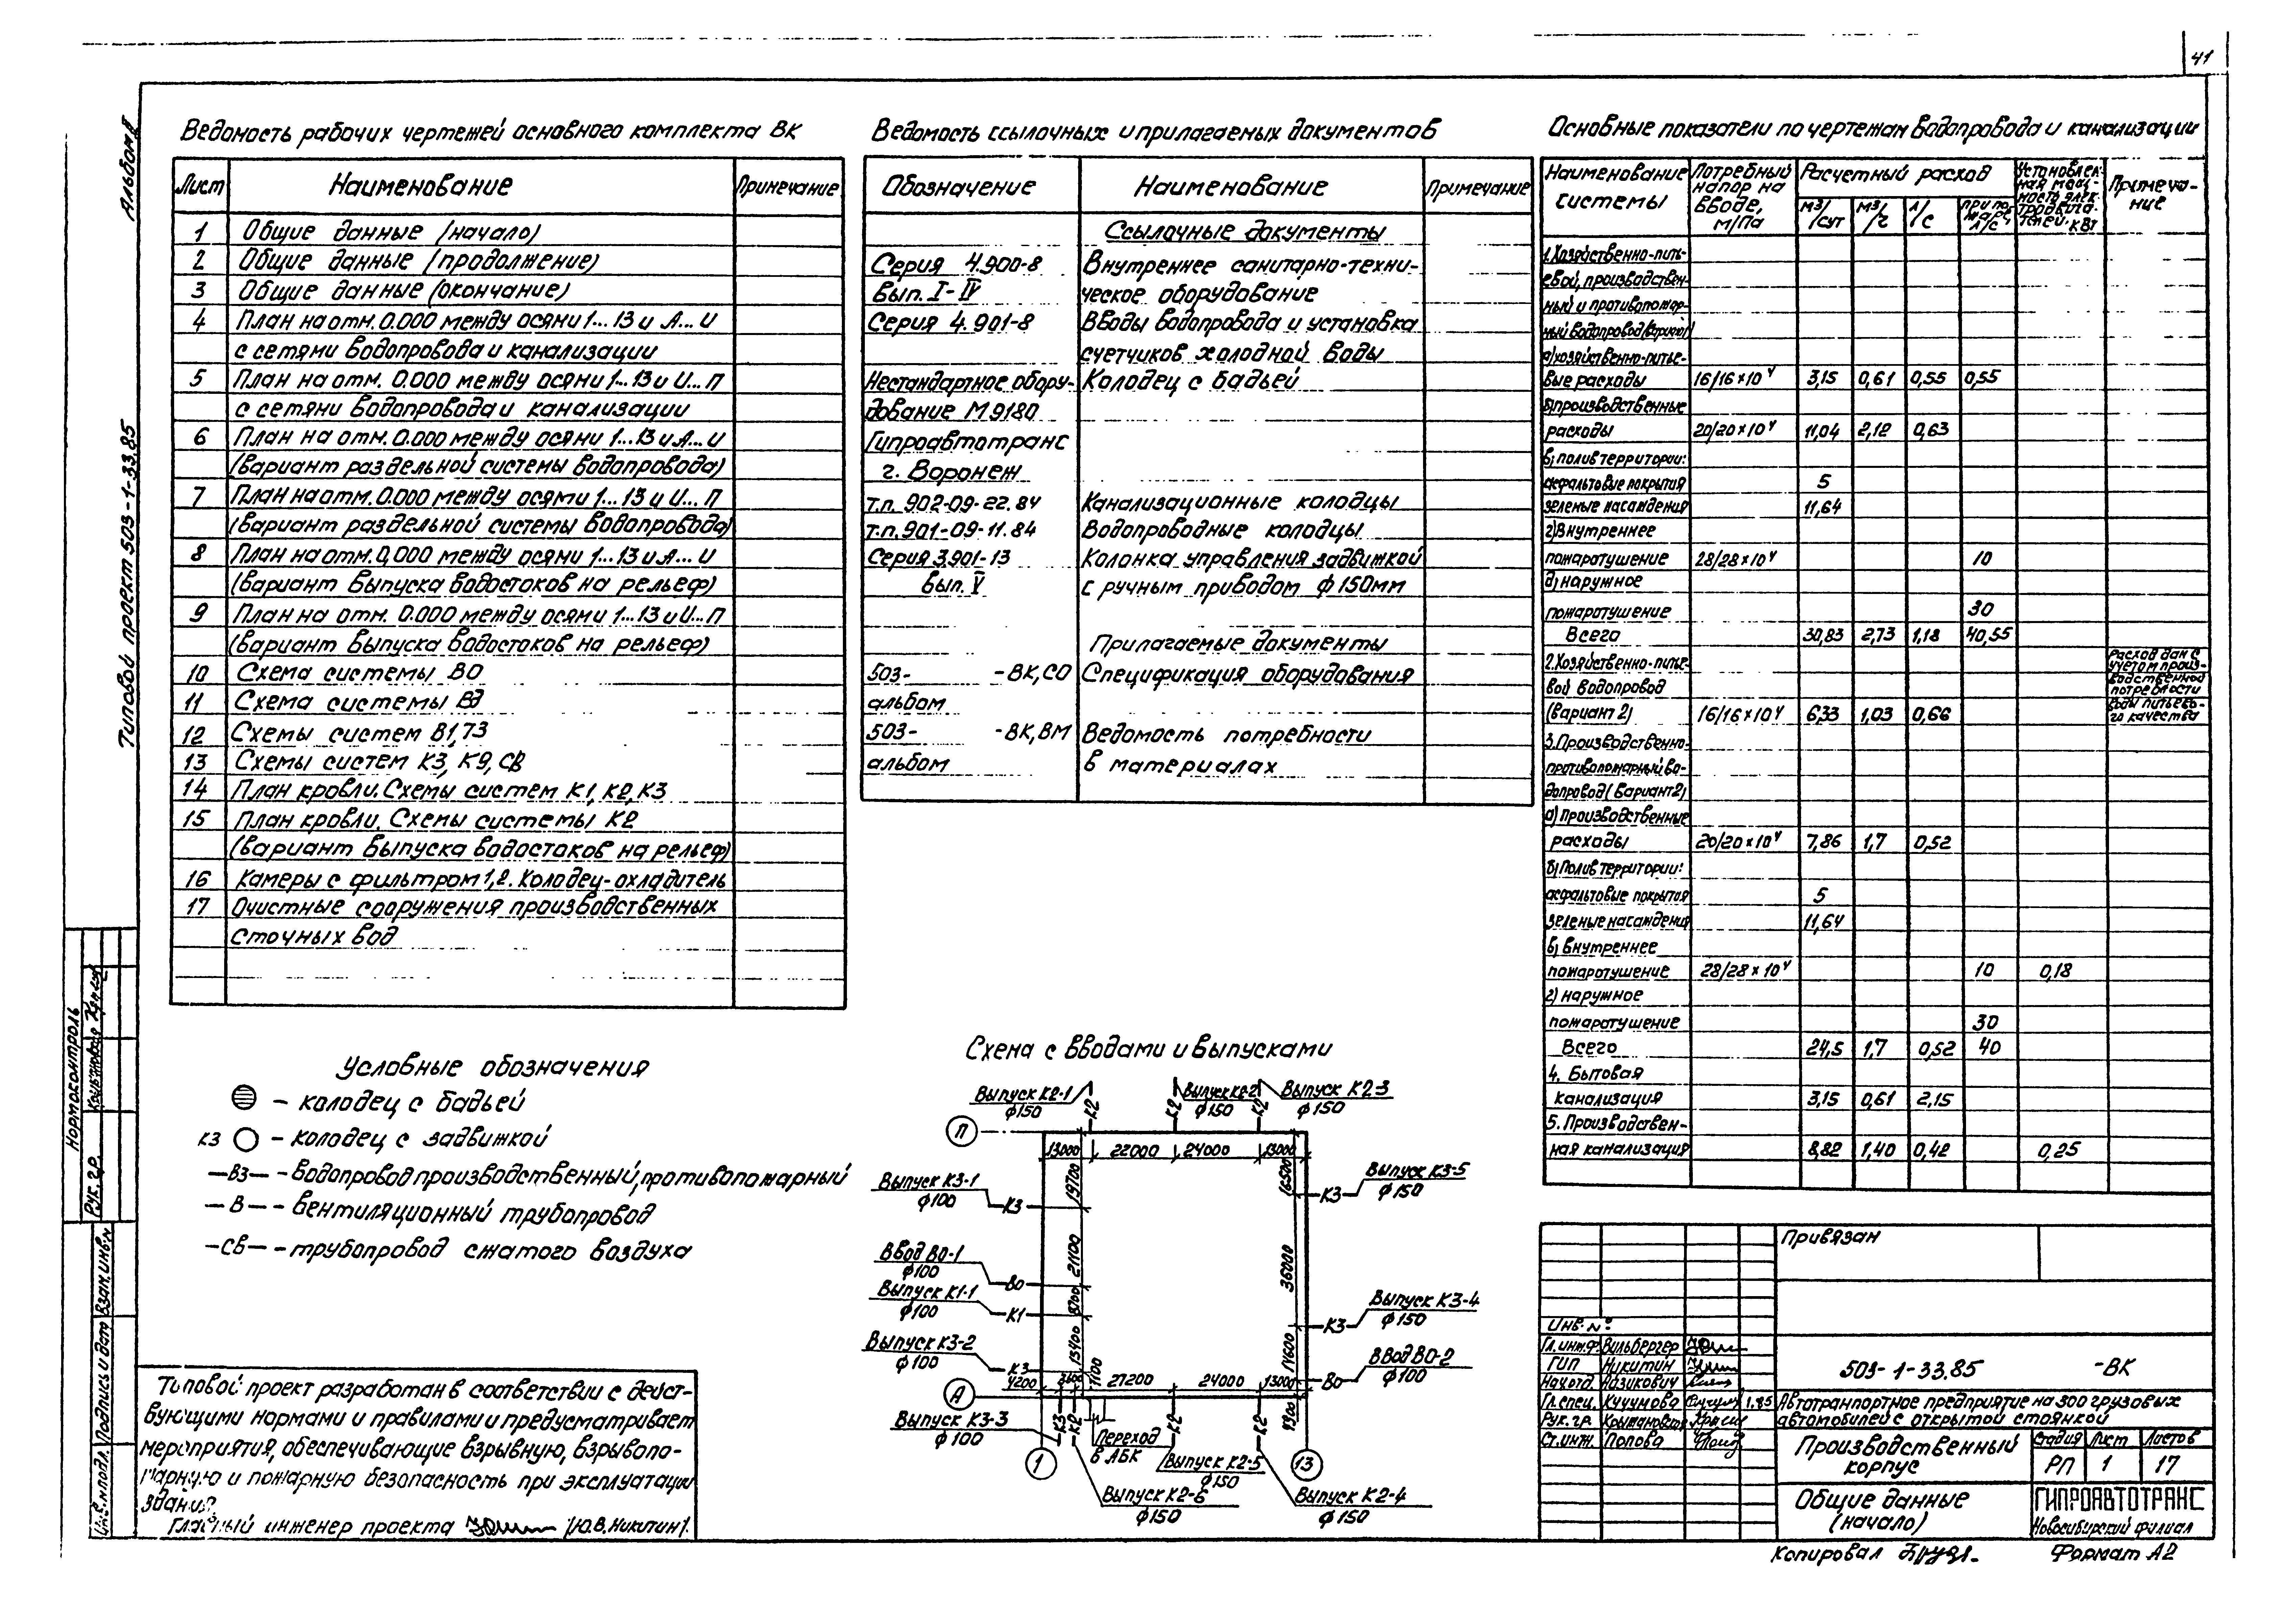 41
Альбом II
Типовой проект 503-1-33.85
Ведомость рабочих чертежей основного комплекта ВК
Лист Наименование Примечание
1 Общие данные (начало)
2 Общие данные (продолжение)
3 Общие данные (окончание)
4 План на отм. 0.000 между осями 1...13 и А...И
с сетями водопровода и канализации
5 План на отм. 0.000 между осями 1...13 и И...П
с сетями водопровода и канализации
6 План на отм. 0.000 между осями 1...13 и А...И
(вариант раздельной системы водопровода)
7 План на отм. 0.000 между осями 1...13 и И...П
(вариант раздельной системы водопровода)
8 План на отм. 0,000 между осями 1...13 и А...И
(вариант выпуска водостоков на рельеф)
9 План на отм. 0.000 между осями 1...13 и И...П
(вариант выпуска водостоков на рельеф)
10 Схема системы В0
11 Схема системы
12 Схемы систем В1, Т3
13 Схемы систем К3, К9, СВ
14 План кровли. Схемы систем К1, К2, К3
15 План кровли. Схемы системы К2
(вариант выпуска водостоков на рельеф)
16 Камеры с фильтром 1,2. Колодец-охладитель
17 Очистные сооружения производственных
сточных вод
Ведомость ссылочных и прилагаемых документов
Обозначение Наименование Примечание
Ссылочные документы
Серия 4.900-8 Внутреннее санитарно-техни-
Вып. I-IV ческое оборудование
Серия 4.901-8 Вводы водопровода и установка
счетчиков холодной воды
Нестандартное обору- Колодец с бадьей
дование М9180
Гипроавтотранс
г. Воронеж
т.п. 902-09-22.84 Канализационные колодцы
т.п. 901-09-11.84 Водопроводные колодцы
Серия 3.901-13 Колонка управления задвижкой
вып. V с ручным приводом ф 150мм
Прилагаемые документы
503- -ВК,СО Спецификация оборудования
альбом
503- -ВК,ВМ Ведомость потребности
альбом в материалах
Основные показатели по чертежам водопровода и канализации
Наименование системы Потребный напор на вводе, м/Па Расчетный расход Установлен-ная мощ-ность элек-тродвига-телей, кВт Примеча-ние
м3/сут м3/г л/с при по-жаре, л/с
1. Хозяйственно-пить-
евой, производствен-
ный и противопожар-
ный водопровод (вариант 1)
а) хозяйственно-питье-
вые расходы 16/16×10⁴ 3,15 0,61 0,55 0,55
б) производственные
расходы 20/20×10⁴ 11,04 2,12 0,63
в) полив территории:
асфальтовые покрытия 5
зеленые насаждения 11,64
г) Внутреннее
пожаротушение 28/28×10⁴ 10
д) наружное
пожаротушение 30
Всего 30,83 2,73 1,18 40,55
2. Хозяйственно-питье-
вой водопровод
(Вариант 2) 16/16×10⁴ 6,33 1,03 0,66
Расход дан с
учетом произ-
водственной
потребности
воды питьево-
го качества
3. Производственно-
противопожарный во-
допровод (Вариант 2)
а) производственные
расходы 20/20×10⁴ 7,86 1,7 0,52
б) Полив территории:
асфальтовые покрытия 5
зеленые насаждения 11,64
в) Внутреннее
пожаротушение 28/28×10⁴ 10 0,18
г) наружное
пожаротушение 30
Всего 24,5 1,7 0,52 40
4. Бытовая
канализация 3,15 0,61 2,15
5. Производствен-
ная канализация 8,82 1,40 0,42 0,25
Условные обозначения
- колодец с бадьей
К3 - колодец с задвижкой
—В3— - водопровод производственный, противопожарный
—В— - вентиляционный трубопровод
—СВ— - трубопровод сжатого воздуха
Схема с вводами и выпусками
Выпуск К2-1 ф150
Выпуск К2-2 ф150
Выпуск К2-3 ф150
К2 К2 К2
П
13000 22000 24000 13000
Выпуск К3-1 ф100 К3
19700
16500
К3 Выпуск К3-5 ф150
Ввод В0-1 ф100 В0
21100
36000
Выпуск К1-1 ф100 К1
8700
К3 Выпуск К3-4 ф150
Выпуск К3-2 ф100 К3
13400
14600
В0 Ввод В0-2 ф100
4200 1100 27200 24000 13000
А
Выпуск К3-3 ф100
К3 К2 К2 К2
Переход
в АБК
Выпуск К2-5 ф150
1 13
Выпуск К2-6 ф150
Выпуск К2-4 ф150
Типовой проект разработан в соответствии с дейст-
вующими нормами и правилами и предусматривает
мероприятия, обеспечивающие взрывную, взрывопо-
жарную и пожарную безопасность при эксплуатации
здания.
Главный инженер проекта /Ю.В. Никитин/.
Нормоконтроль
Рук. гр.
Инв. № подл. Подпись и дата Взам. инв. №
Привязан
Инв. №
Гл. инж. ф. Вильбергер
ГИП Никитин
Нач. отд. Назикович
Гл. спец. Кучумова 1.85
Рук. гр. Крыжановская
Ст. инж. Попова
503-1-33.85 -ВК
Автотранспортное предприятие на 300 грузовых
автомобилей с открытой стоянкой
Производственный
корпус
Стадия Лист Листов
РП 1 17
Общие данные
(начало)
ГИПРОАВТОТРАНС
Новосибирский филиал
Копировал
Формат А2